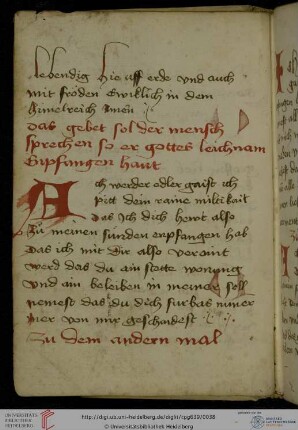 lebendig hie uff erde vnd auch
mit fröden Ewiklich in dem
himelreich Amen
das gebet sol der mensch
sprechen so er gottes leichnam
Enpfangen haut
Ach werder edler gaist ich
pitt dein raine miltikait
das Ich dich heut also
zu meinen sunden enpfangen hab
das ich mit dir also veraint
werd das du ain stette wonung
und ain beleiben in meiner sell
nemest das du dich furbas nimer
mer von mir geschaidest
Zu dem andern mal
UNIVERSITÄTS-
BIBLIOTHEK
HEIDELBERG
http://digi.ub.uni-heidelberg.de/diglit/cpg639/0038
© Universitätsbibliothek Heidelberg